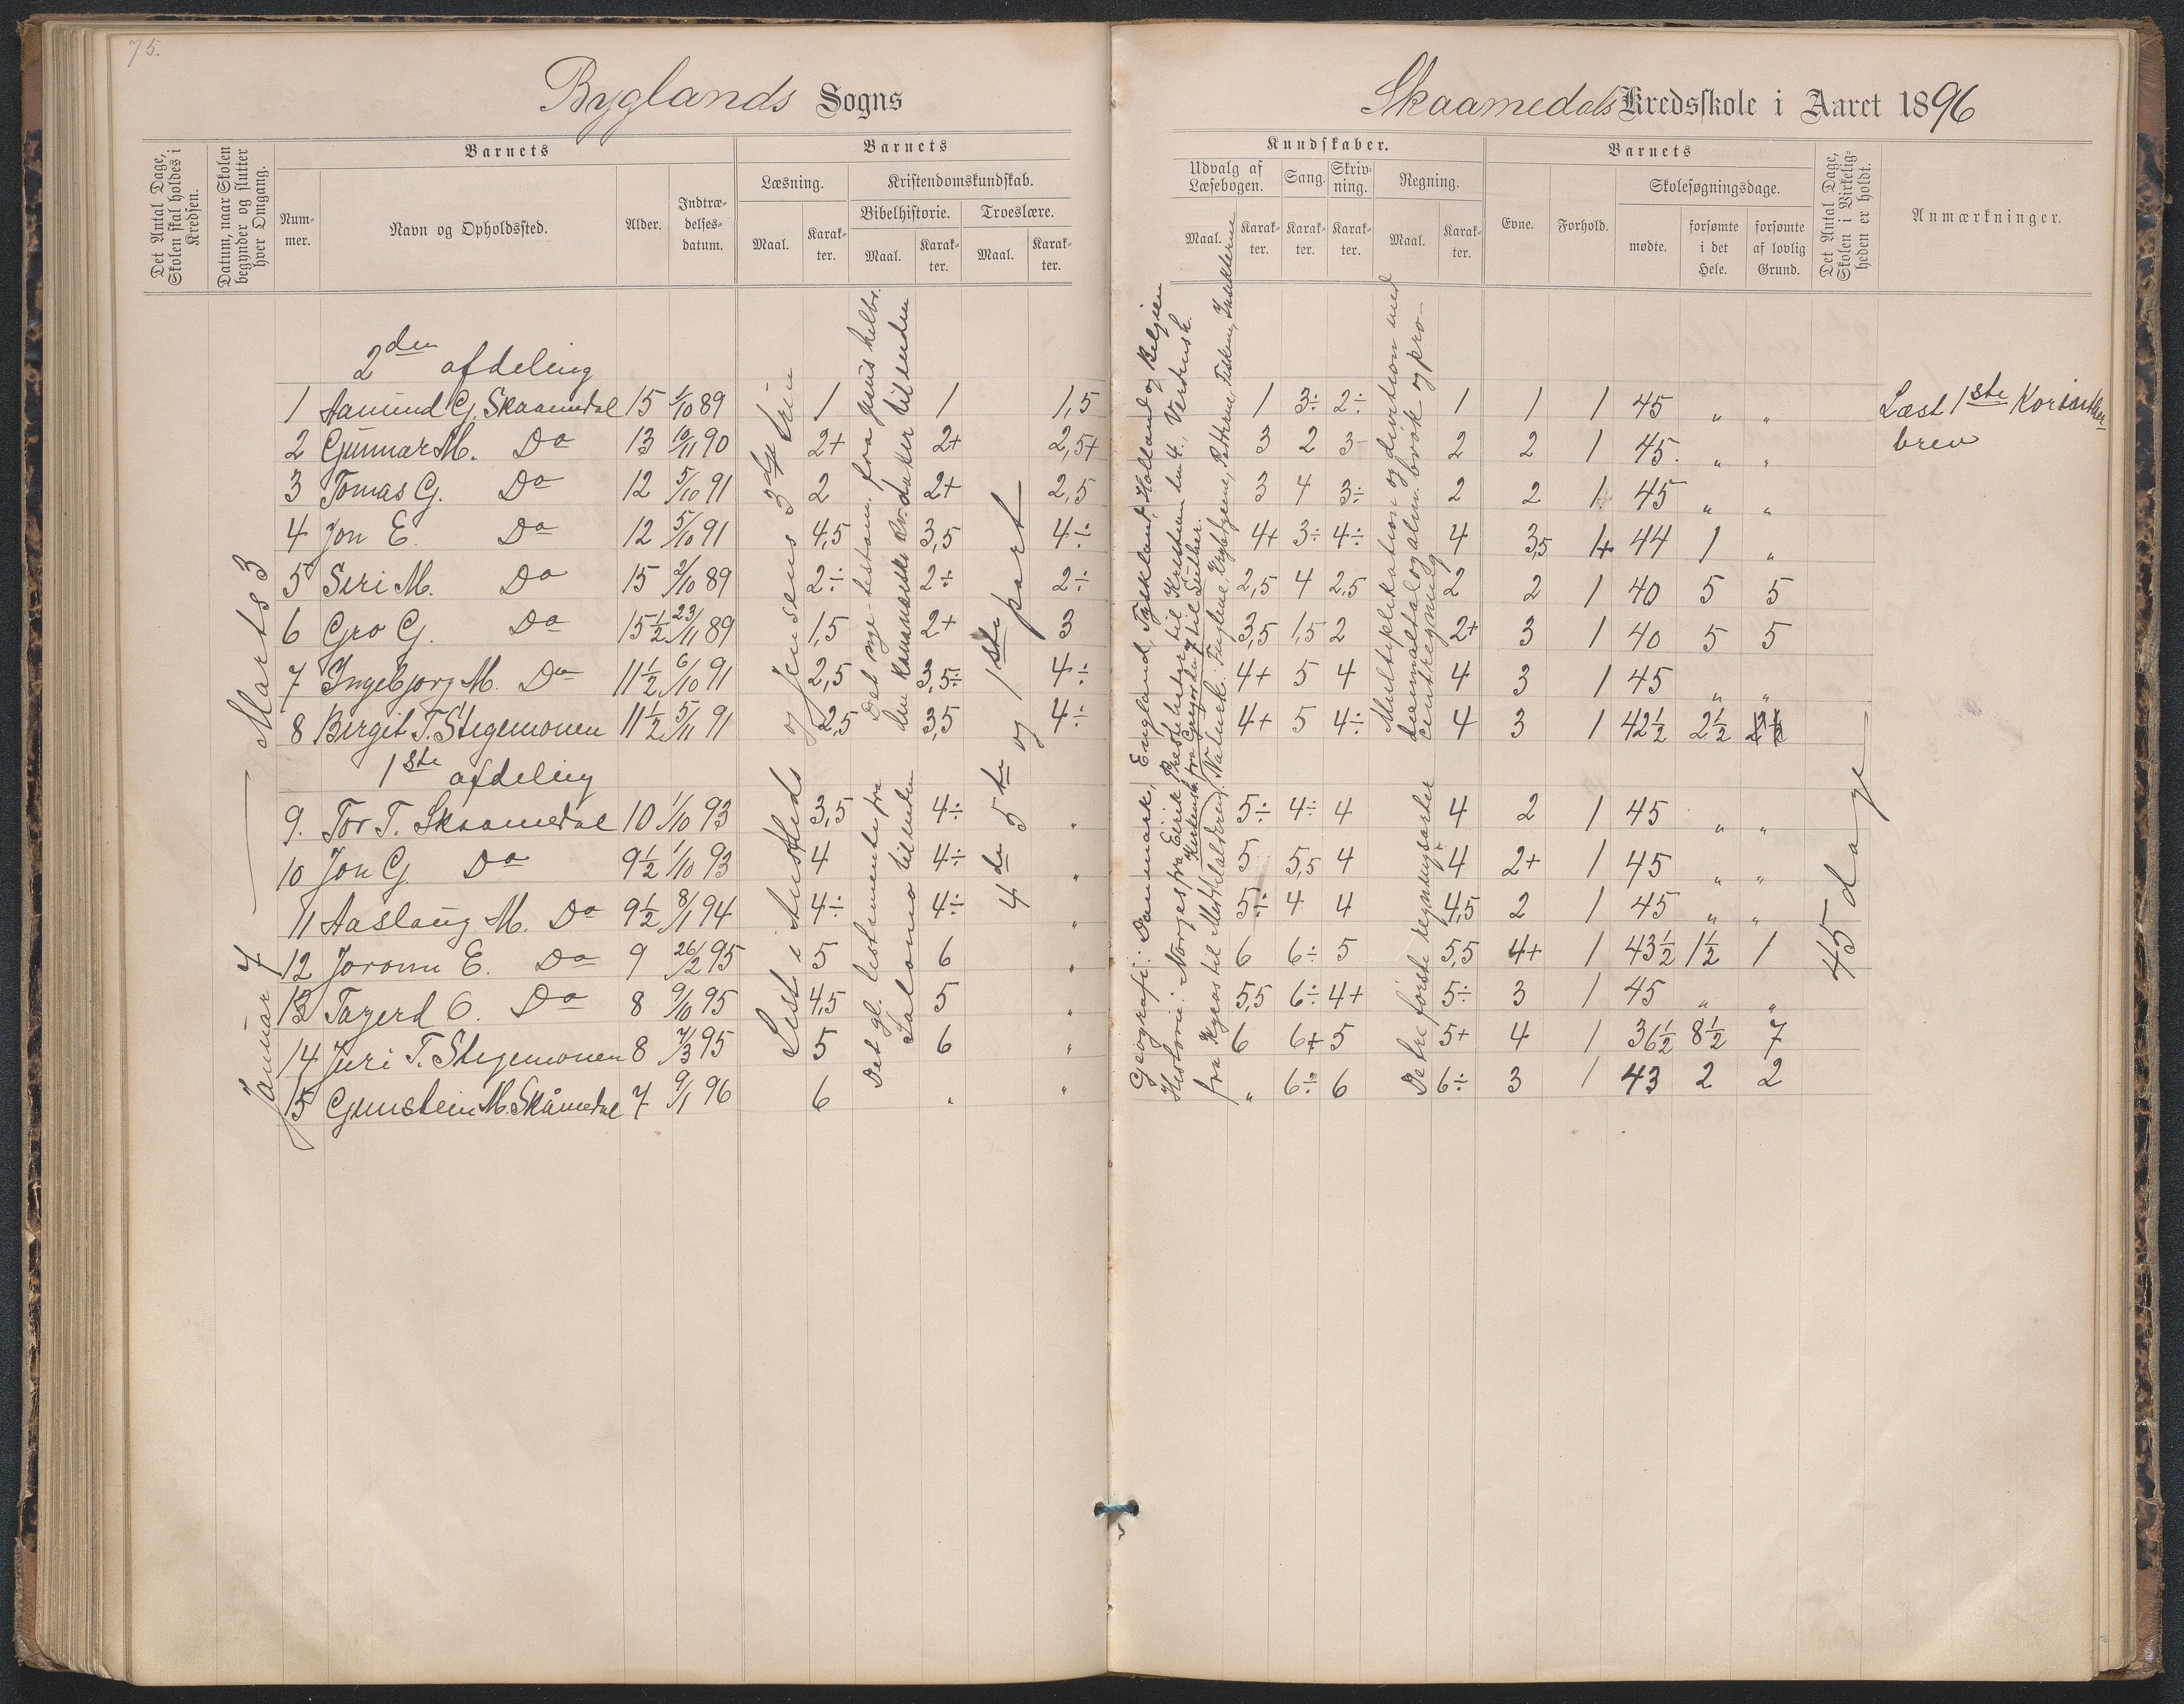 75.
Byglands Sogns
Skaamedals Kredsskole i Aaret 1896
Det Antal Dage, Skolen skal holdes i Kredsen.
Datum, naar Skolen begynder og slutter hver Omgang.
Barnets
Num-mer.
Navn og Opholdssted.
Alder.
Indtræ-delses-datum.
Barnets
Læsning.
Maal.
Karak-ter.
Kristendomskundskab.
Bibelhistorie.
Maal.
Karak-ter.
Troeslære.
Maal.
Karak-ter.
Kundskaber.
Udvalg af Læsebogen.
Maal.
Karak-ter.
Sang.
Karak-ter.
Skriv-ning.
Karak-ter.
Regning.
Maal.
Karak-ter.
Barnets
Evne.
Forhold.
Skolesøgningsdage.
mødte.
forsømte i det Hele.
forsømte af lovlig Grund.
Det Antal Dage, Skolen i Virkelig-heden er holdt.
Anmærkninger.
Januar 7 — Marts 3
2den afdeling
1 Aamund G. Skaamedal 15 1/10 89 1 1 1,5 1 3÷ 2÷ 1 1 1 45 " "
2 Gunnar M. Do 13 10/11 90 2+ 2+ 2,5+ 3 2 3- 2 2 1 45. " "
3 Tomas G. Do 12 5/10 91 2 2+ 2,5 3 4 3÷ 2 2 1 45 " "
4 Jon E. Do 12 5/10 91 4,5 3,5 4÷ 4+ 3÷ 4÷ 4 3,5 1+ 44 1 "
5 Seri M. Do 15 2/10 89 2÷ 2÷ 2÷ 2,5 4 2,5 2 2 1 40 5 5
6 Gro G. Do 15½ 23/11 89 1,5 2+ 3 3,5 1,5 2 2+ 3 1 40 5 5
7 Ingebjorg M. Do 11½ 6/10 91 2,5 3,5÷ 4÷ 4+ 5 4 4 3 1 45 " "
8 Birgit T. Stegemonen 11½ 5/11 91 2,5 3,5 4÷ 4+ 5 4÷ 4 3 1 42½ 2½
1ste afdeling
9. Tor T. Skaamedal 10 1/10 93 3,5 4÷ " 5÷ 4÷ 4 4 2 1 45 " "
10 Jon G. Do 9½ 1/10 93 4 4÷ " 5 5,5 4 4 2+ 1 45 " "
11 Aaslaug M. Do 9½ 8/1 94 4÷ 4÷ " 5÷ 4 4 4,5 2 1 45 " "
12 Joronn E. Do 9 26/2 95 5 6 " 6 6÷ 5 5,5 4+ 1 43½ 1½ 1
13 Targerd O. Do 8 9/10 95 4,5 5 " 5,5 6÷ 4+ 5÷ 3 1 45 " "
14 Juri T. Stegemonen 8 7/3 95 5 6 " 6 6+ 5 5+ 4 1 36½ 8½ 7
15 Gunstein M. Skåmedal 7 9/1 96 6 " " " 6÷ 6 6÷ 3 1 43 2 2
Lest i Austlids
og Jensens 3dje trin
Det nye testam. fra Jesus helbr.
den kananæiske kv. datter til enden
Det gl. testamente fra
Salomo til enden
4de 5te og 1ste part
Geografi: Danmark, England, Tyskland, Holland og Belgien
Historie: Norges fra Eirik Prestehater til Kristian den 4., Verdensh.
fra Kyros til Middelalderen.
Kirkehist. fra Gregor den 7 til Luther.
Naturk.: Fuglene, Krybdyrene, Padderne, Fiskene, Insekterne
Multiplikation og division med
decimaltal og alm. brøk og pro-
centregning
De tre første regningsarter
45 dage
Læst 1ste Korinther-
brev